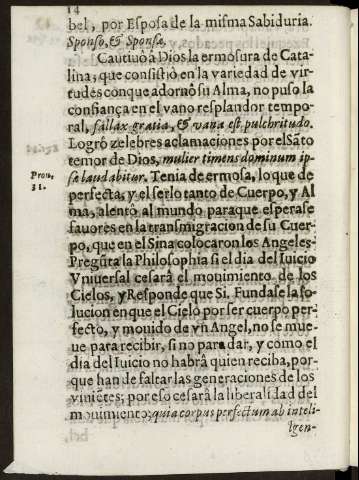 14
bel, por Esposa de la misma Sabiduria.
Sponso, & Sponsæ.
Cautiuò à Dios la ermosura de Cata-
lina; que consistiò en la variedad de vir-
tudes con que adornò su Alma, no puso la
confiança en el vano resplandor tempo-
ral, fallax gratia, & vana est pulchritudo.
Logrò zelebres aclamaciones por el Sãto
temor de Dios, mulier timens dominum ip-
Prou. sa laudabitur. Tenia de ermosa, lo que de
31. perfecta, y el serlo tanto de Cuerpo, y Al
ma, alentò al mundo paraque esperase
fauores en la transmigracion de su Cuer-
po, que en el Sina colocaron los Angeles-
Pregũta la Philosophia si el dia del Iuicio
Vniuersal cesarà el mouimiento de los
Cielos, y Responde que Si. Fundase la so-
lucion en que el Cielo por ser cuerpo per-
fecto, y mouido de vñ Angel, no se mue-
ue para recibir, si no para dar, y como el
dia del Iuicio no habrà quien reciba, por-
que han de faltar las generaciones de los
viniẽtes; por eso cesarà la liberalidad del
mouimiento; quia corpus perfectum ab inteli-
lgen-